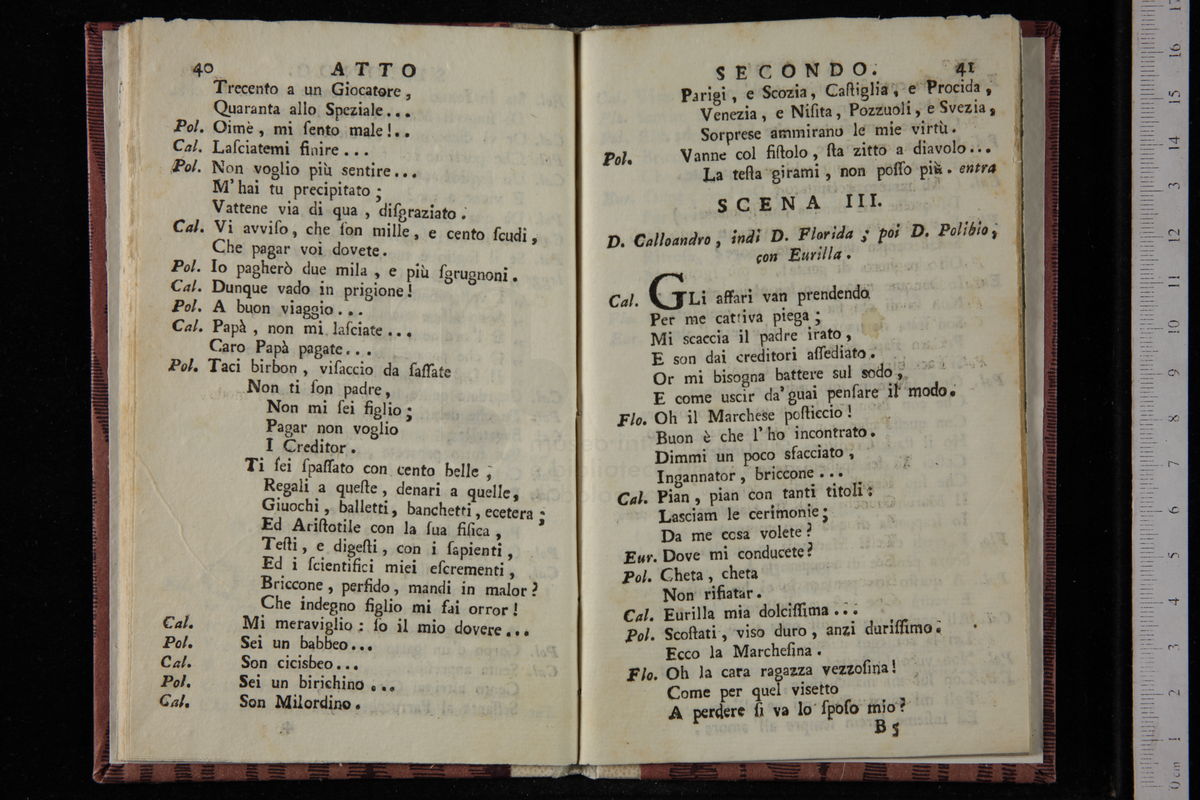 40 ATTO
Trecento a un Giocatore,
Quaranta allo Speziale...
Pol. Oimè, mi ſento male!..
Cal. Laſciatemi finire...
Pol. Non voglio più sentire...
M'hai tu precipitato;
Vattene via di qua, diſgraziato.
Cal. Vi avviſo, che ſon mille, e cento ſcudi,
Che pagar voi dovete.
Pol. Io pagherò due mila, e più ſgrugnoni.
Cal. Dunque vado in prigione!
Pol. A buon viaggio...
Cal. Papà, non mi laſciate...
Caro Papà pagate...
Pol. Taci birbon, viſaccio da ſaſſate
Non ti ſon padre,
Non mi ſei figlio;
Pagar non voglio
I Creditor.
Ti ſei ſpaſſato con cento belle,
Regali a queſte, denari a quelle,
Giuochi, balletti, banchetti, ecetera;
Ed Ariſtotile con la ſua fiſica,
Teſti, e digeſti, con i ſapienti,
Ed i ſcientifici miei eſcrementi,
Briccone, perfido, mandi in malor?
Che indegno figlio mi fai orror!
Cal. Mi meraviglio: ſo il mio dovere...
Pol. Sei un babbeo...
Cal. Son cicisbeo...
Pol. Sei un birichino...
Cal. Son Milordino.
SECONDO. 41
Parigi, e Scozia, Caſtiglia, e Procida,
Venezia, e Niſita, Pozzuoli, e Svezia,
Sorprese ammirano le mie virtù.
Pol. Vanne col fiſtolo, ſta zitto a diavolo...
La teſta girami, non poſſo più. entra
SCENA III.
D. Calloandro, indi D. Florida; poi D. Polibio,
con Eurilla.
Cal. GLi affari van prendendo
Per me cattiva piega;
Mi scaccia il padre irato,
E son dai creditori aſſediato.
Or mi bisogna battere sul sodo,
E come uscir da'guai penſare il modo.
Flo. Oh il Marchese poſticcio!
Buon è che l'ho incontrato.
Dimmi un poco sfacciato,
Ingannator, briccone...
Cal. Pian, pian con tanti titoli:
Laſciam le cerimonie;
Da me cosa volete?
Eur. Dove mi conducete?
Pol. Cheta, cheta
Non rifiatar.
Cal. Eurilla mia dolciſſima...
Pol. Scoſtati, viso duro, anzi duriſſimo.
Ecco la Marcheſina.
Flo. Oh la cara ragazza vezzoſina!
Come per quel visetto
A perdere ſi va lo ſpoſo mio?
B 5